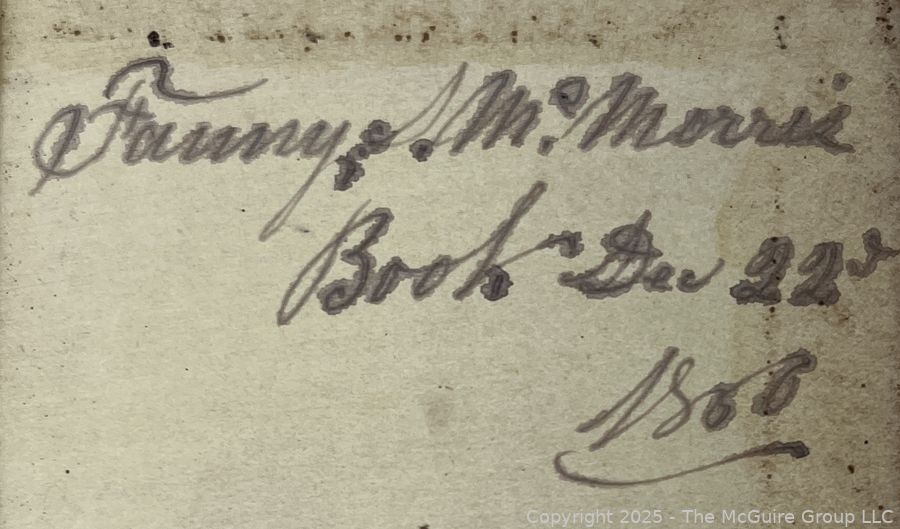 Fanny, S. Mc. Morris
Book Dec 22d
1866
Copyright 2025 - The McGuire Group LLC